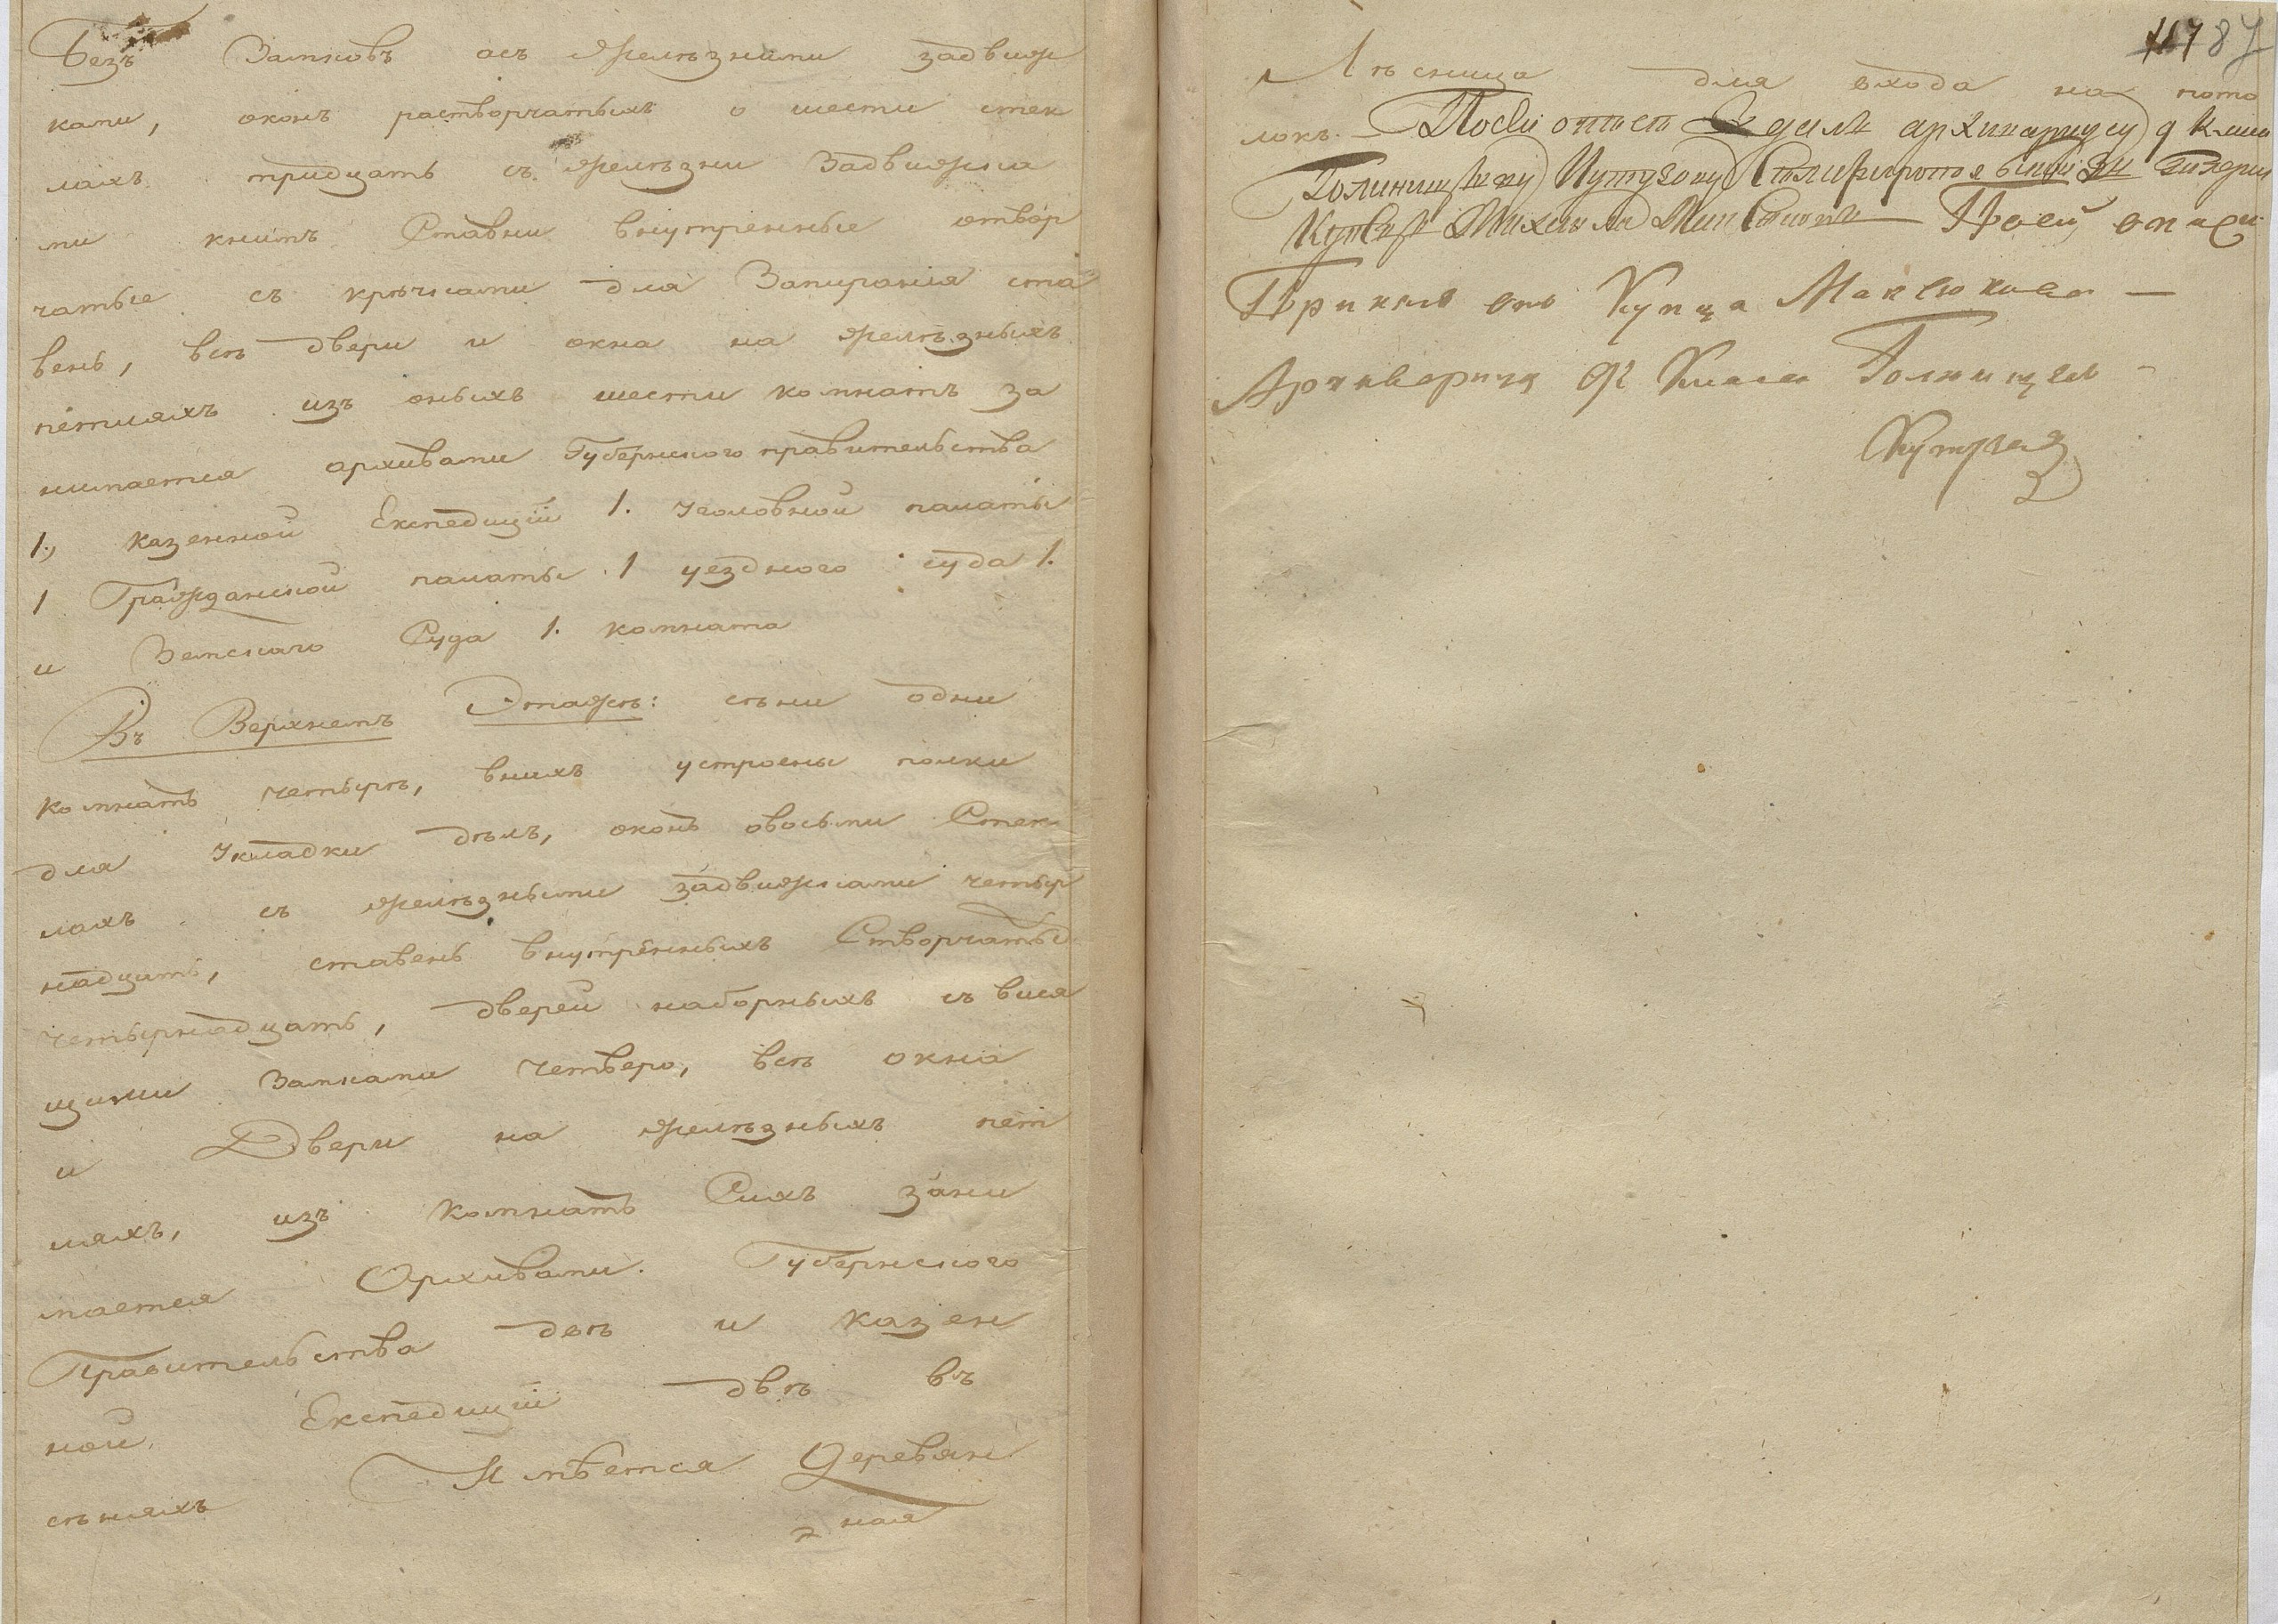 Безъ Замковъ асъ железными задвиж
ками, оконъ растворчатыхъ о шести стек
лахъ тридцать съ железни Задвижка
ми книмъ Ставни внутренные отвор
чатые съ крючками для Запирания ста
вень, все двери и окна на железныхъ
петляхъ изъ оныхъ шести комнатъ за
нимается архивами Губернского правительства
1., казенной Експедиции 1. Уголовной палаты
1 Гражданской палаты 1 уездного суда 1.
и Земскаго Суда 1. комната
Въ Верхнемъ Этаже: сени одни
комнатъ четыре, внихъ устроены полки
для Укладки делъ, оконъ овосьми Стек
лахъ съ железными задвижками четыр
надцать, ставень внутренныхъ Створчаты
четырнадцать, дверей наборныхъ съ вися
щими Замками четверо, все окна
и Двери на железныхъ пет
ляхъ, изъ комнатъ Сихъ зани
мается Архивами. Губернского
Правительства две и казен
ной Експедиции две въ
сеняхъ Имеется Деревян
ная
1178 87
Лесница для входа на пото
локъ. Посей описи Сдалъ архивариусу
Кутузову
Купецъ Михаила Посей описи
Принялъ отъ Купца
Архиварисъ Князь Голенищев
Кутузовъ